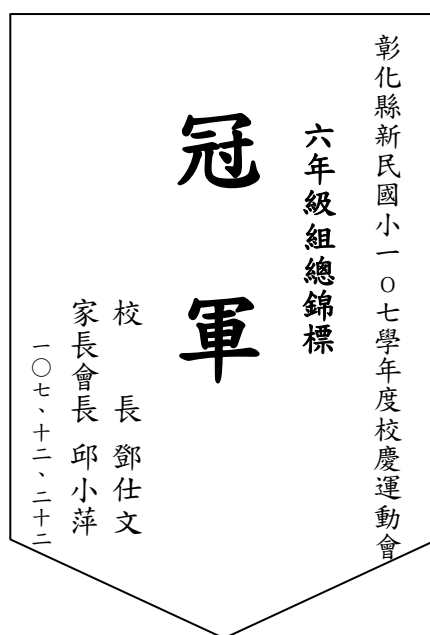 彰化縣新民國小一０七學年度校慶運動會
六年級組總錦標
冠軍
校長 鄧仕文
家長會長 邱小萍
一○七、十二、二十二